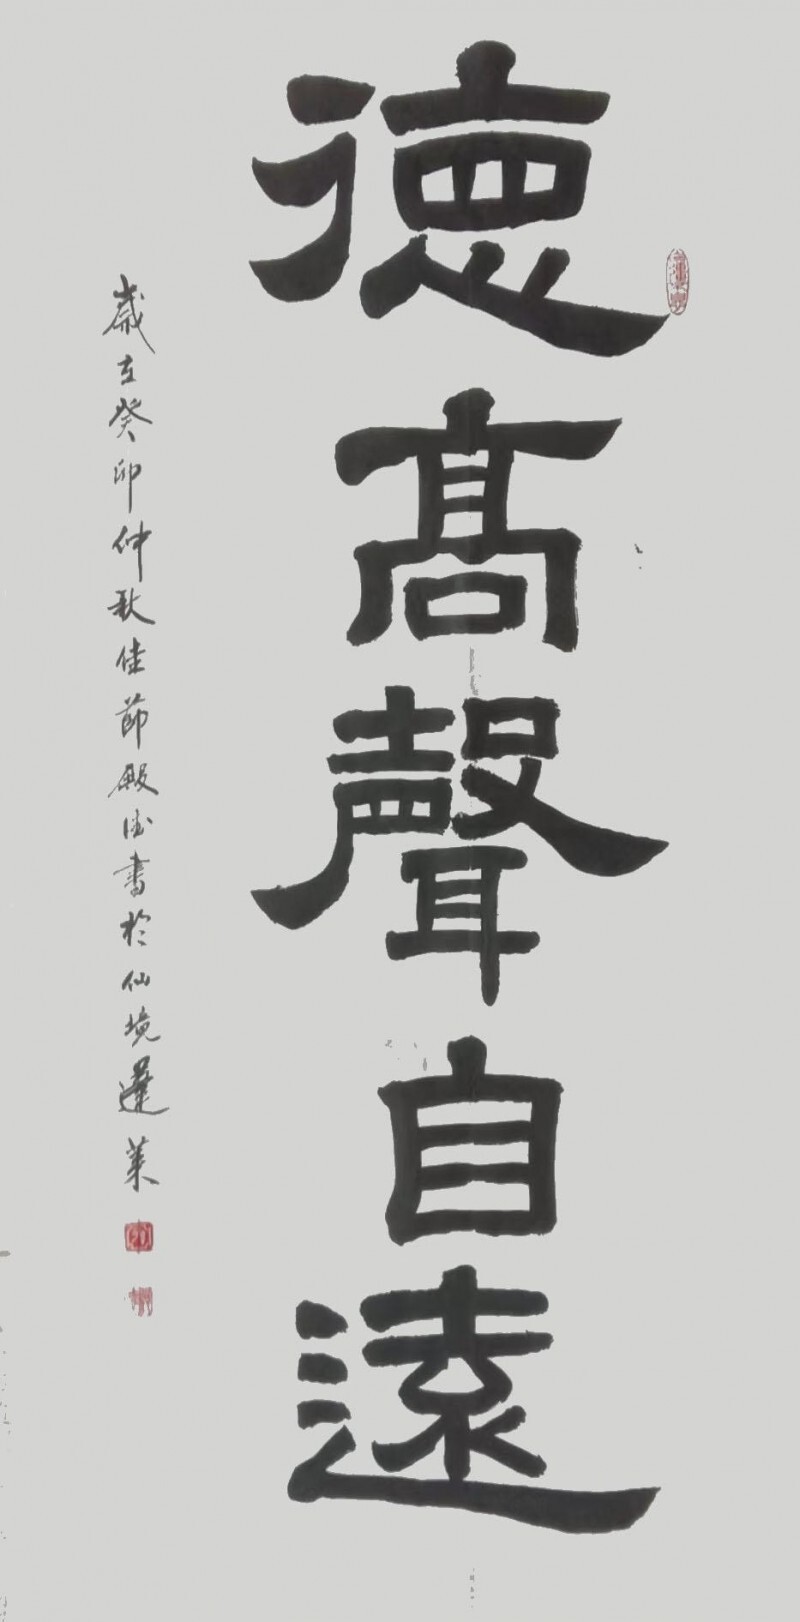 德高聲自遠
歲在癸卯仲秋佳節殿德書於仙境蓬萊